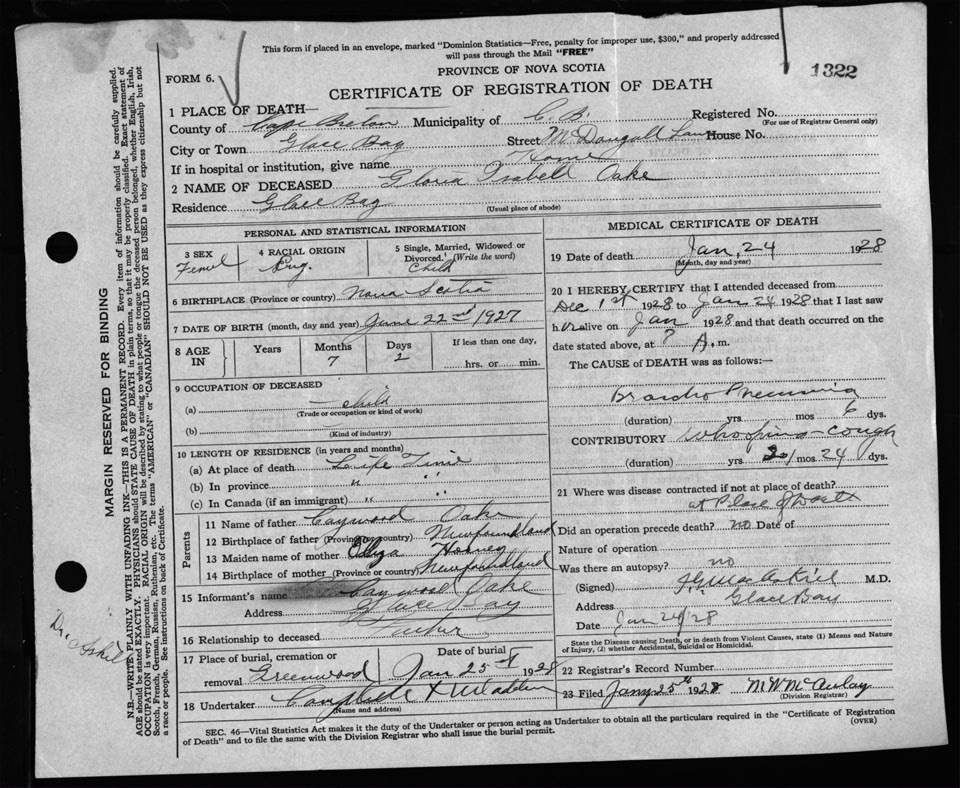 This form if placed in an envelope, marked "Dominion Statistics—Free, penalty for improper use, $300," and properly addressed
will pass through the Mail "FREE"
1322
FORM 6.
PROVINCE OF NOVA SCOTIA
CERTIFICATE OF REGISTRATION OF DEATH
1 PLACE OF DEATH—
County of Cape Breton Municipality of C. B. Registered No.
(For use of Registrar General only)
City or Town Glace Bay Street McDougall Lane House No.
If in hospital or institution, give name Home
2 NAME OF DECEASED Gloria Isabell Oake
Residence Glace Bay
(Usual place of abode)
PERSONAL AND STATISTICAL INFORMATION
3 SEX Femel
4 RACIAL ORIGIN Eng.
5 Single, Married, Widowed or Divorced. (Write the word) Child
6 BIRTHPLACE (Province or country) Nova Scotia
7 DATE OF BIRTH (month, day and year) June 22nd 1927
8 AGE IN Years Months 7 Days 2 If less than one day, hrs. or min.
9 OCCUPATION OF DECEASED
(a) child
(Trade or occupation or kind of work)
(b)
(Kind of industry)
10 LENGTH OF RESIDENCE (in years and months)
(a) At place of death Life Time
(b) In province " "
(c) In Canada (if an immigrant) " "
Parents
11 Name of father Caywood Oake
12 Birthplace of father (Province or country) Newfoundland
13 Maiden name of mother
14 Birthplace of mother (Province or country) Newfoundland
15 Informant's name Caywood Oake
Address Glace Bay
16 Relationship to deceased
17 Place of burial, cremation or removal Greenwood
Date of burial Jan 25th 1928
18 Undertaker Campbell
(Name and address)
MEDICAL CERTIFICATE OF DEATH
19 Date of death Jan, 24 1928
(Month, day and year)
20 I HEREBY CERTIFY that I attended deceased from
Dec 1st 1928 to Jan 24 1928 that I last saw
h alive on Jan 1928 and that death occurred on the
date stated above, at 8 A. m.
The CAUSE OF DEATH was as follows:—
Broncho Pneumonia
(duration) yrs. mos 6 dys.
CONTRIBUTORY Whooping-cough
(duration) yrs mos 24 dys.
21 Where was disease contracted if not at place of death?
at Place of Death
Did an operation precede death? no Date of
Nature of operation
Was there an autopsy? no
(Signed) M.D.
Address Glace Bay
Date Jan 24/28
State the Disease causing Death, or in death from Violent Causes, state (1) Means and Nature
of Injury, (2) whether Accidental, Suicidal or Homicidal.
22 Registrar's Record Number
23 Filed Jany 25th 1928 M W McAulay
(Division Registrar)
SEC. 46—Vital Statistics Act makes it the duty of the Undertaker or person acting as Undertaker to obtain all the particulars required in the "Certificate of Registration
of Death" and to file the same with the Division Registrar who shall issue the burial permit.
(OVER)
MARGIN RESERVED FOR BINDING
N.B.—WRITE PLAINLY WITH UNFADING INK—THIS IS A PERMANENT RECORD. Every item of information should be carefully supplied.
AGE should be stated EXACTLY. PHYSICIANS should STATE CAUSE OF DEATH in plain terms, so that it may be properly classified. Exact statement of
OCCUPATION is very important. RACIAL ORIGIN will be described by stating to what people or tongue the deceased person belonged, whether English, Irish,
Scotch, French, German, Russian, Ruthenian, etc. The terms "AMERICAN" or "CANADIAN" SHOULD NOT BE USED as they express citizenship but not
a race or people. See instructions on back of Certificate.